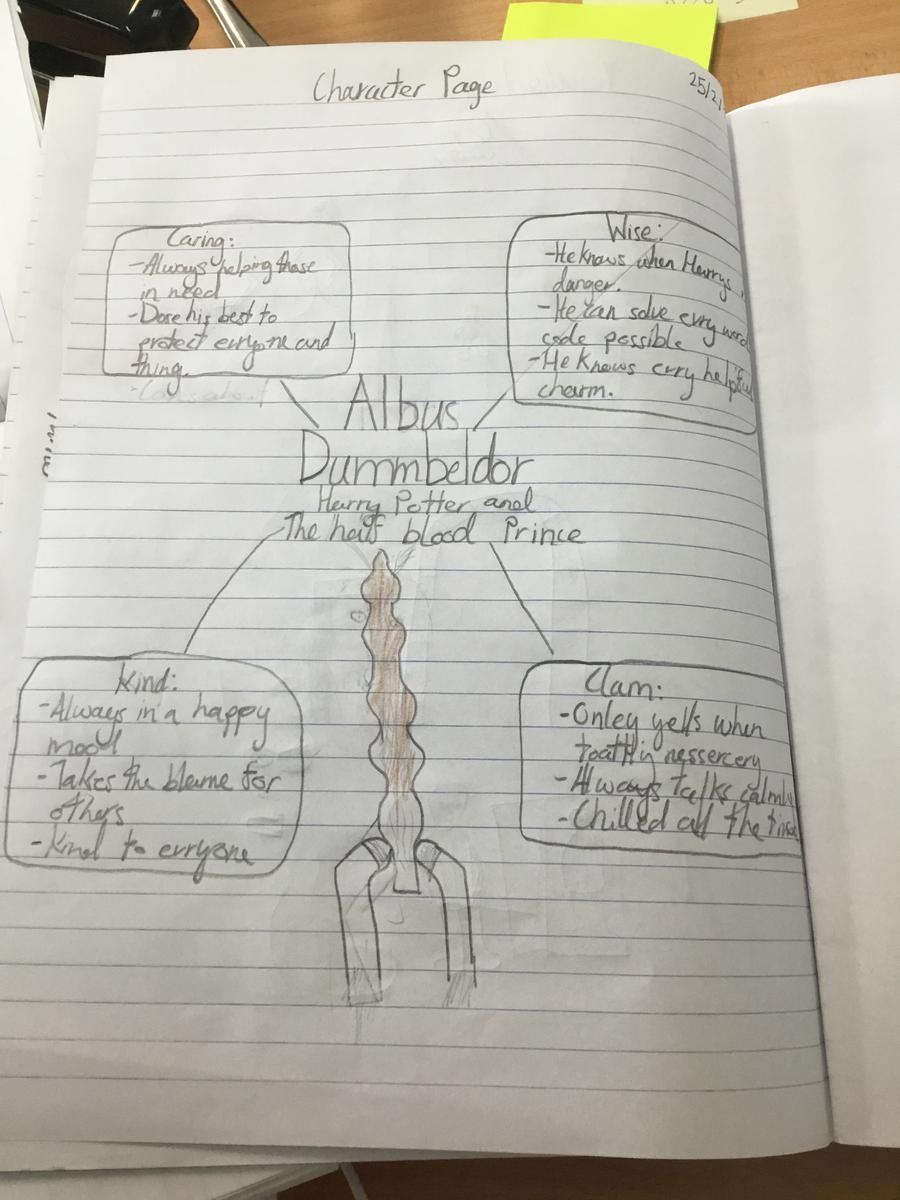 Character Page
25/2/
Caring:
-Always helping those
in need
-Dose his best to
protect erryone and
thing.
Wise:
-He knows when Harrys
danger.
-He can solve evry word
code possible
-He knows evry helpful
charm.
Albus
Dummbeldor
Harry Potter and
The half blood Prince
Kind:
-Always in a happy
mood
-Takes the blame for
others
-Kind to erryone
Clam:
-Onley yells when
toattly nessercery
-Always talks calmly
-Chilled all the time